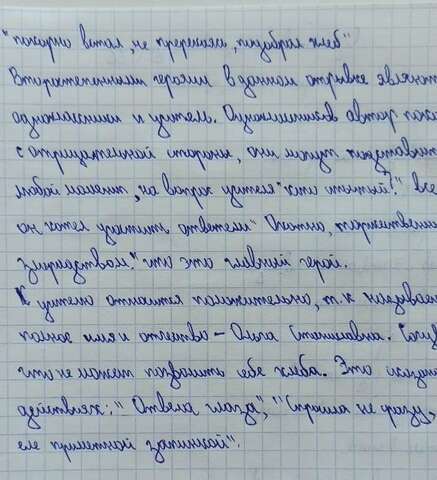 "покорно встал, не пререкаясь, подобрал хлеб"
Второстепенными героями в данном отрывке являют
одноклассники и учитель. Одноклассников автор пока
с отрицательной стороны, они могут подставить
любой момент, на вопрос учителя "кто
он хотел ответили" Охотно, торжественно
злорадством." что это главный герой.
К учителю относится положительно, т.к называе
полное имя и отчество - Ольга Станиславна.
что не может позволить себе хлеба. Это
действиях: " Отвела глаза", "Спросила не сразу,
еле приметной запинкой".